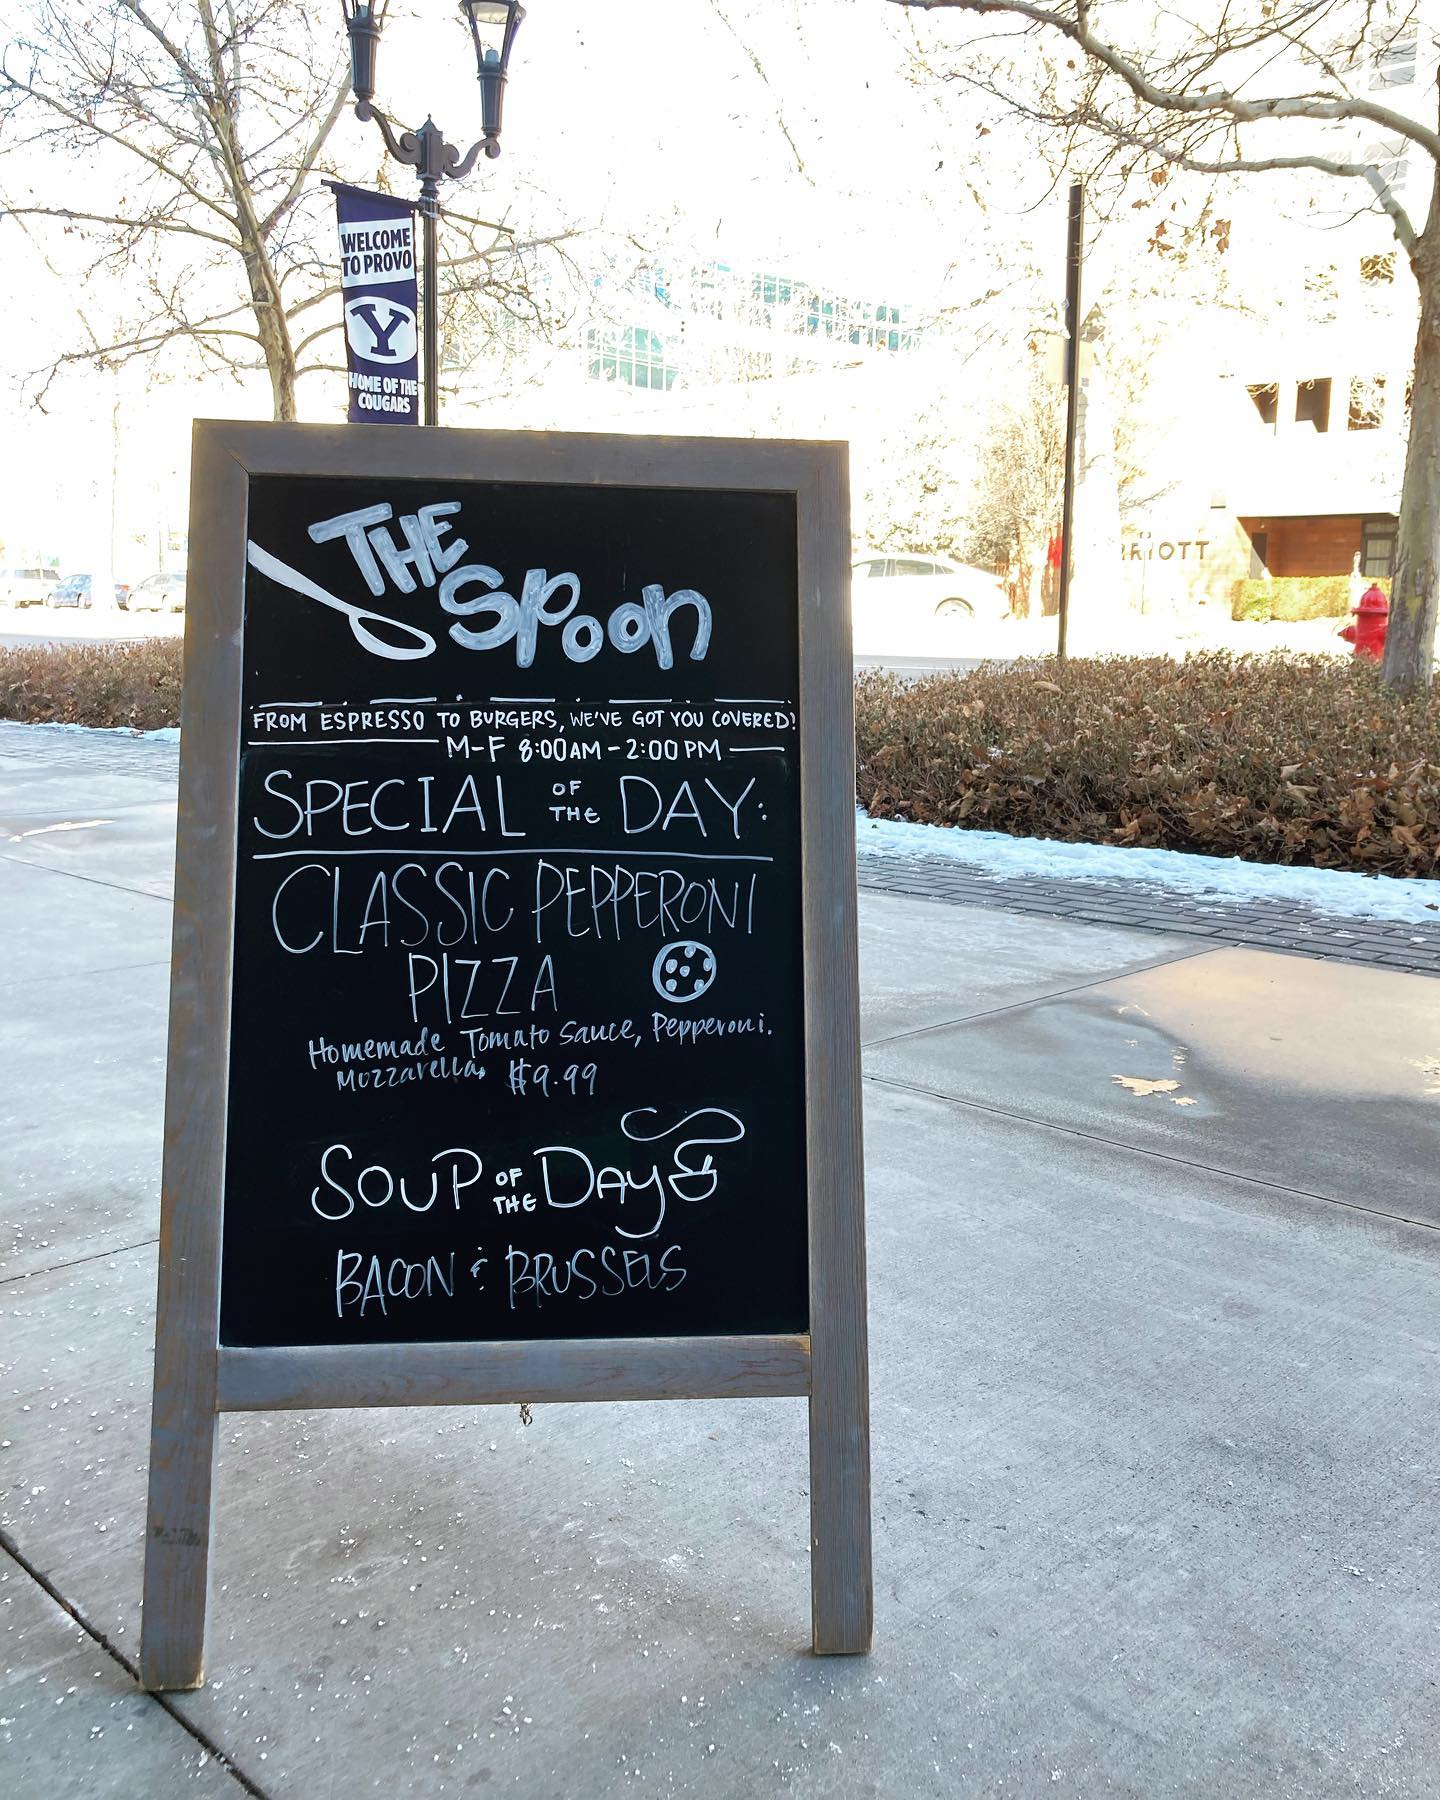 WELCOME
TO PROVO
Y
HOME OF THE
COUGARS
RRIOTT
THE
Spoon
FROM ESPRESSO TO BURGERS, WE'VE GOT YOU COVERED!
M-F 8:00AM-2:00PM
SPECIAL OF THE DAY:
CLASSIC PEPPERONI
PIZZA
Homemade Tomato Sauce, Pepperoni.
Mozzarella. $9.99
SOUP OF THE DAY
BACON & BRUSSELS